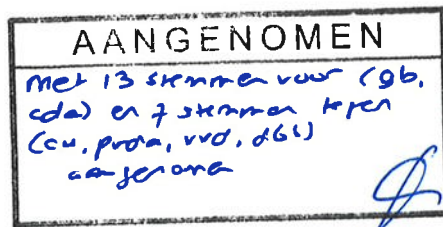 AANGENOMEN
met 13 stemmen voor (gb,
cda) en 7 stemmen tegen
(cu, pvda, vvd, d66)
aangenomen